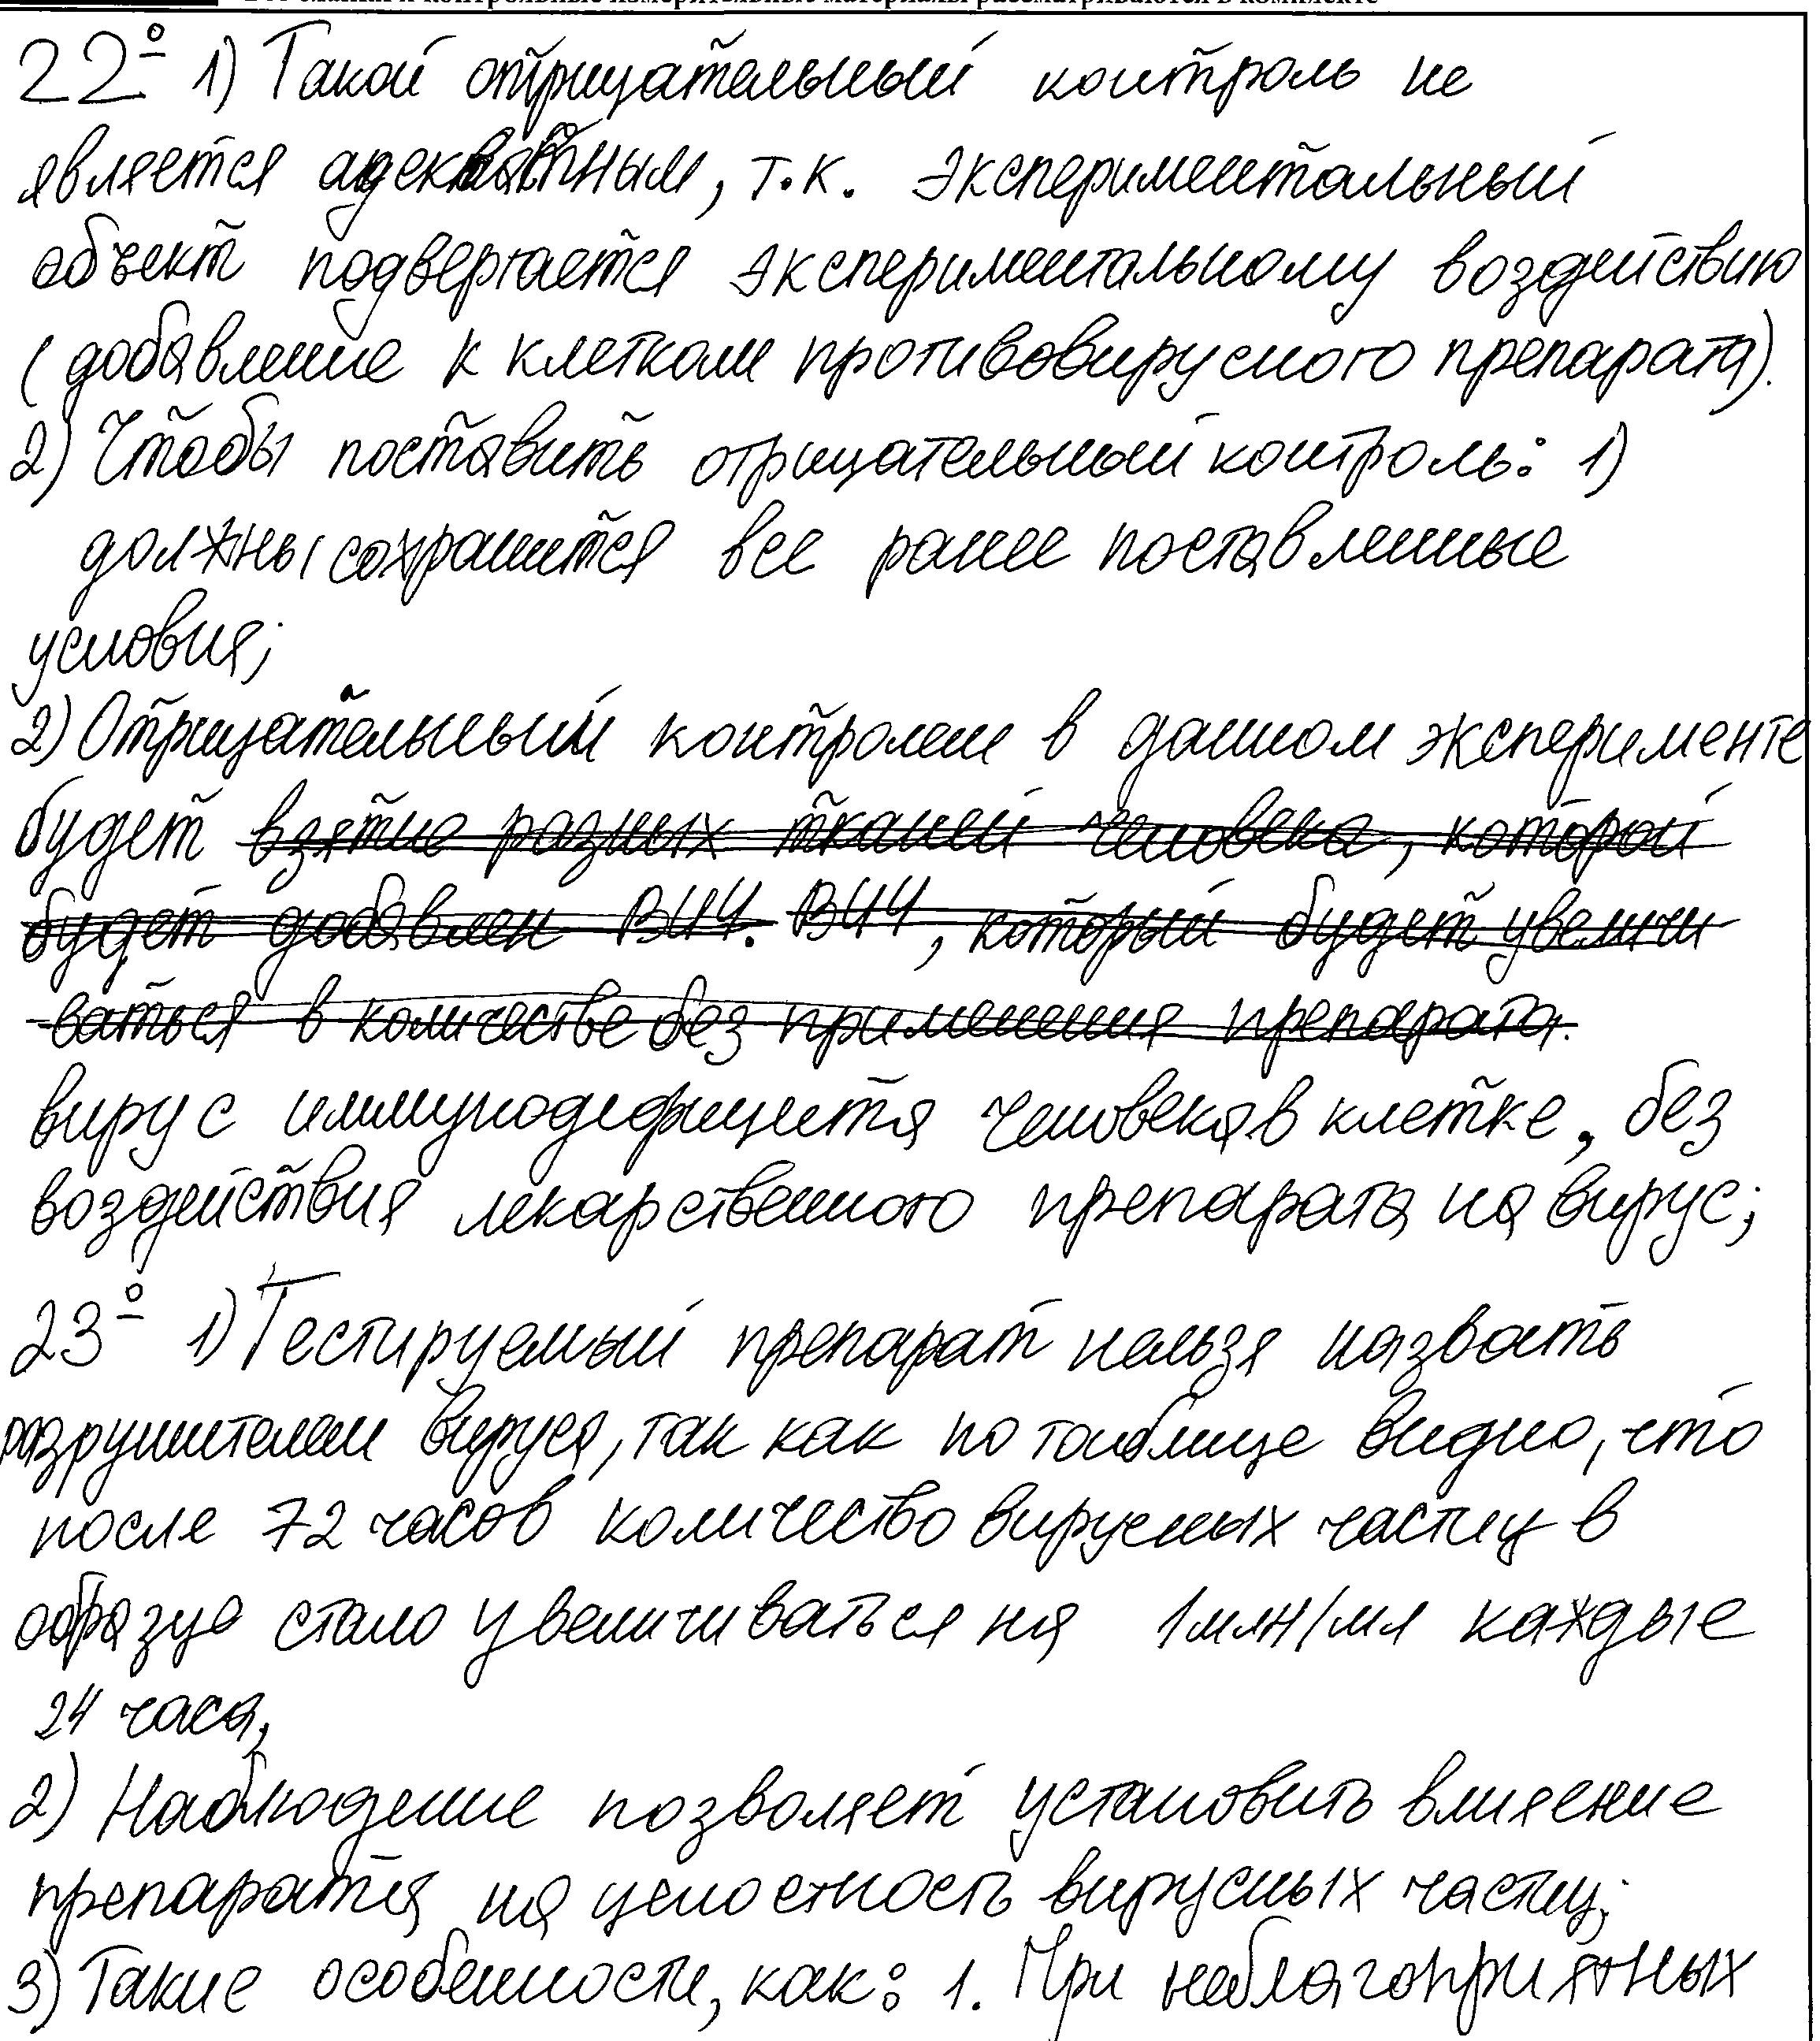 22º 1) Такой отрицательный контроль не
является адекватным, т.к. экспериментальный
объект подвергается экспериментальному воздействию
(добавление к клеткам противовирусного препарата).
2) Чтобы поставить отрицательный контроль: 1)
должны сохранится все ранее поставленные
условия;
2) Отрицательный контролем в данном эксперименте
будет взятие разных тканей человека, которой
будет добавлен ВИЧ. ВИЧ, который будет увеличи
ваться в количестве без применения препарата.
вирус иммунодефицита человека в клетке, без
воздействия лекарственного препарата на вирус;
23º 1) Тестируемый препарат нельзя назвать
разрушителем вируса, так как по таблице видно, что
после 72 часов количество вирусных частиц в
образце стало увеличиваться на 1 млн/мл каждые
24 часа,
2) Наблюдение позволяет установить влияение
препарата на целостность вирусных частиц;
3) Такие особенности, как: 1. При неблагоприятных